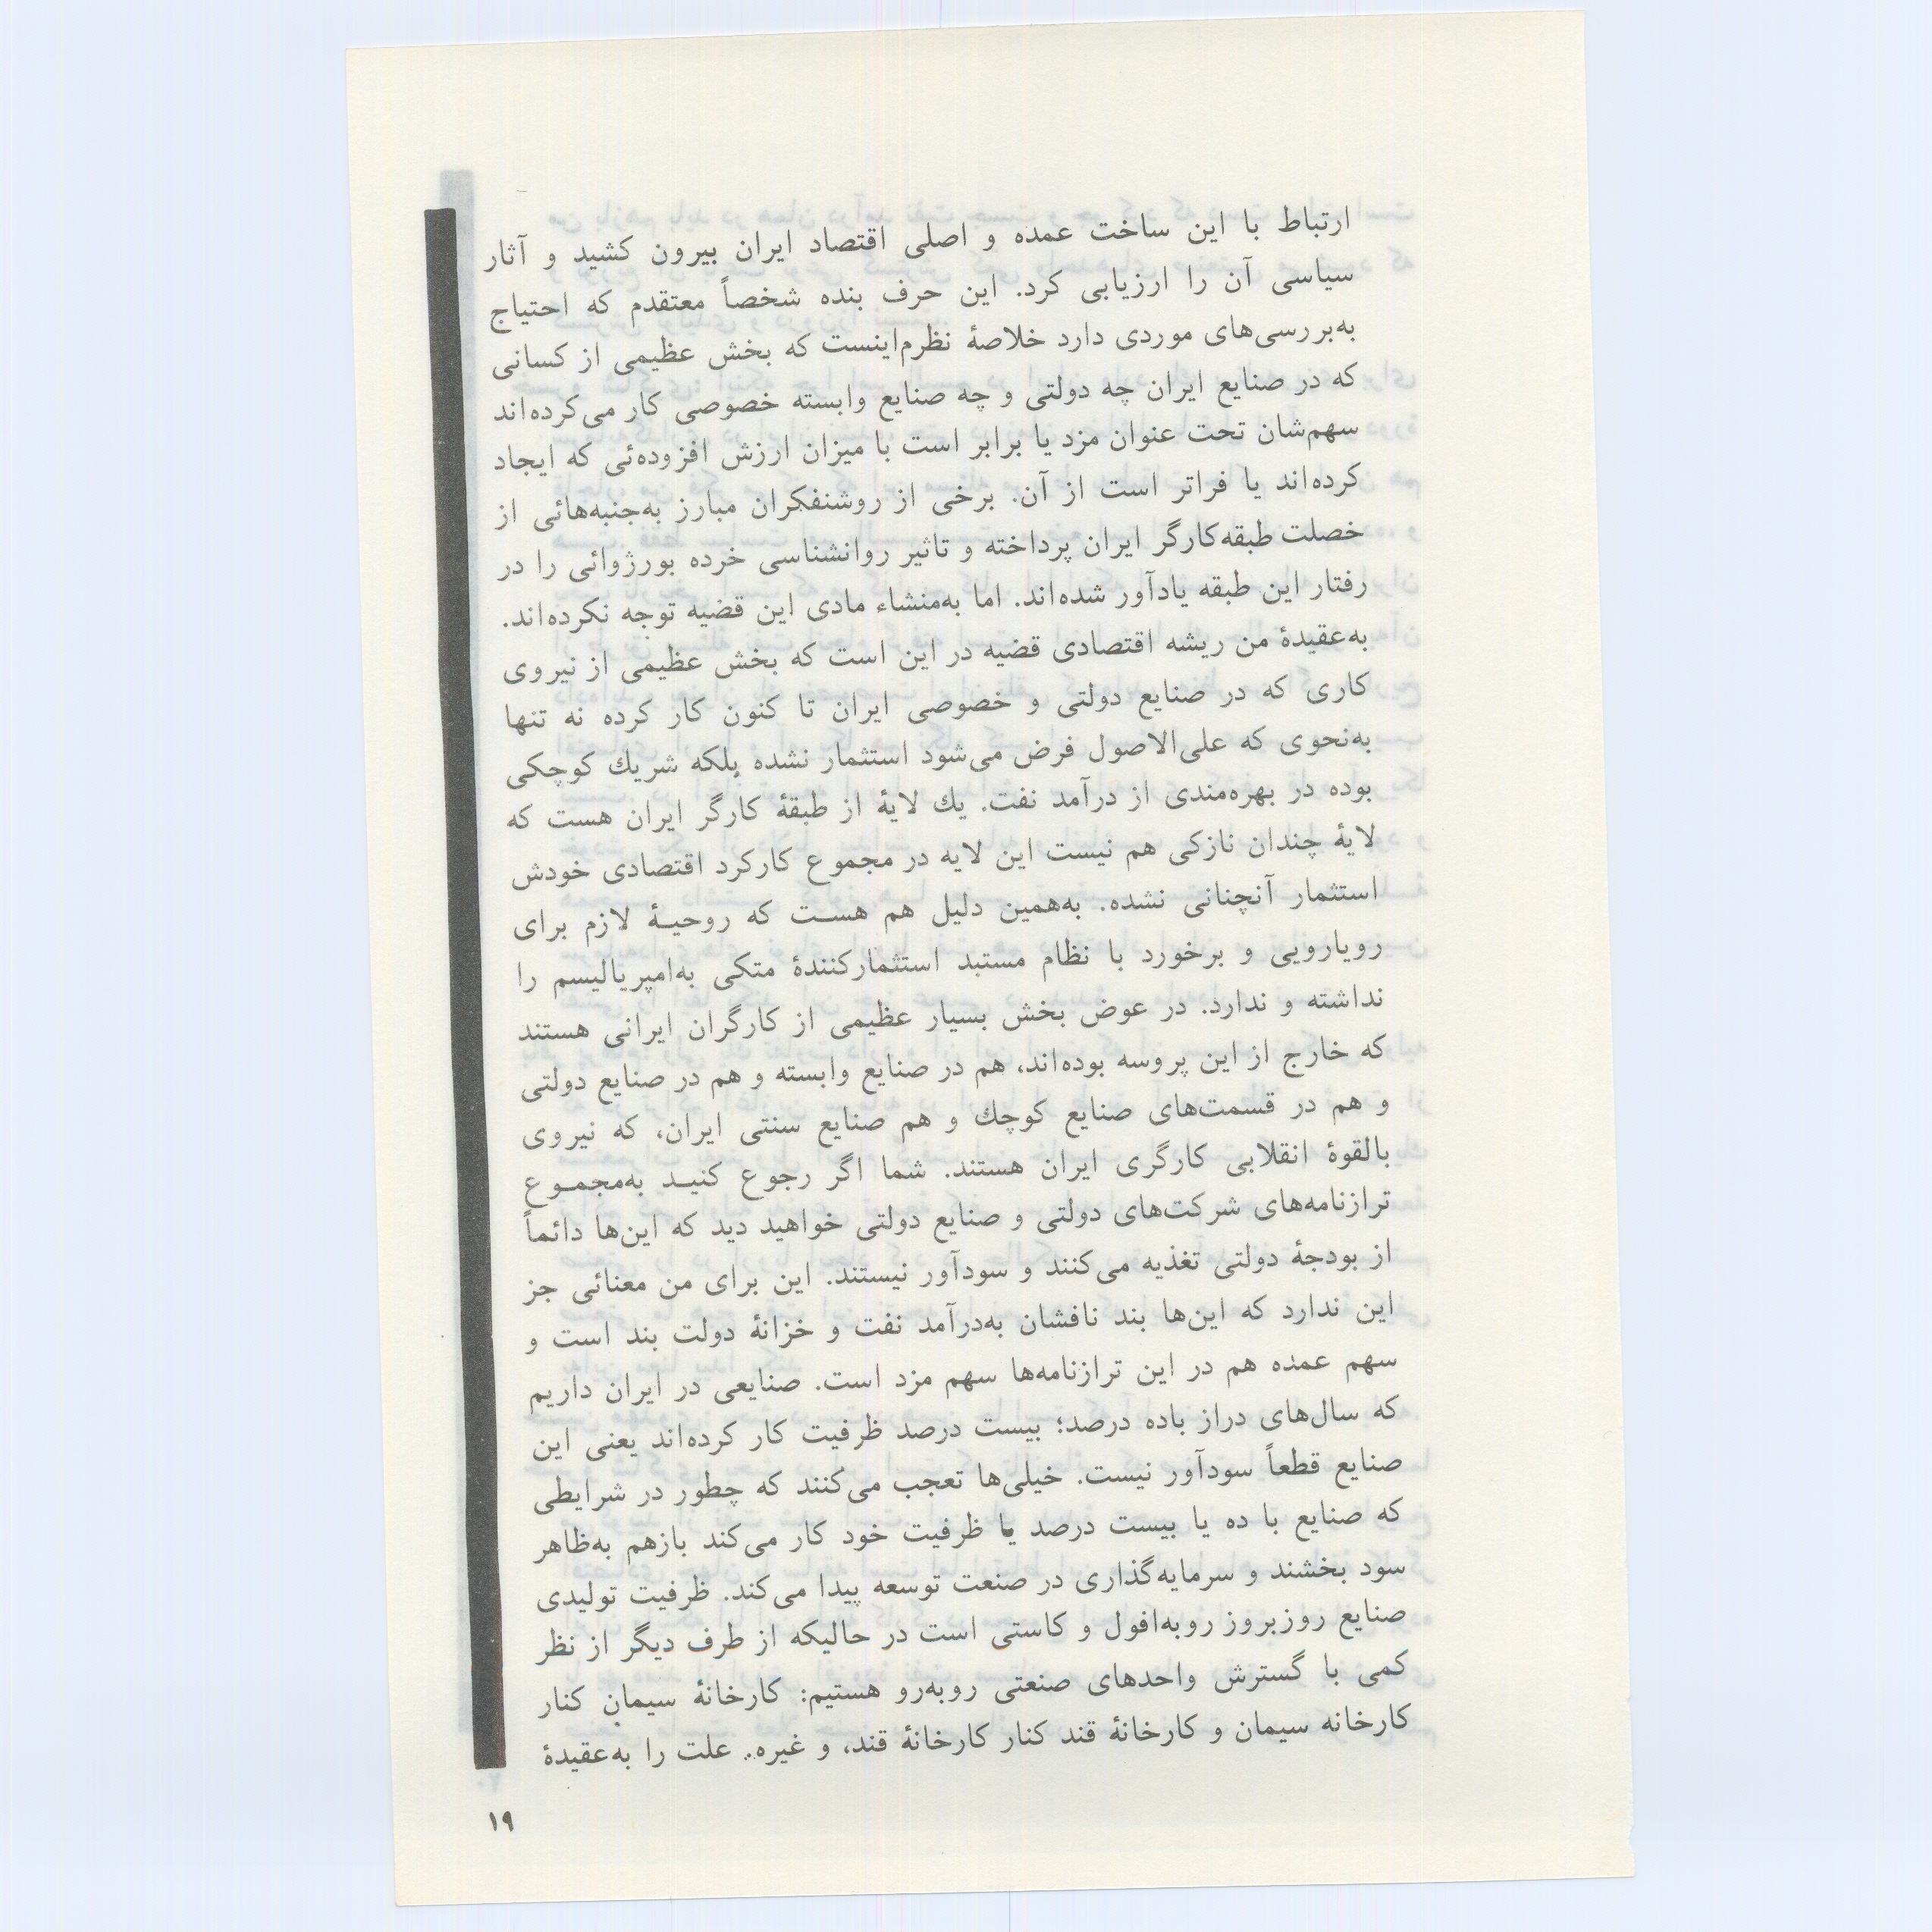 ارتباط با این ساخت عمده و اصلی اقتصاد ایران بیرون کشید و آثار
سیاسی آن را ارزیابی کرد. این حرف بنده شخصاً معتقدم که احتیاج
به‌بررسی‌های موردی دارد خلاصهٔ نظرم‌اینست که بخش عظیمی از کسانی
که در صنایع ایران چه دولتی و چه صنایع وابسته خصوصی کار می‌کرده‌اند
سهم‌شان تحت عنوان مزد یا برابر است با میزان ارزش افزوده‌ئی که ایجاد
کرده‌اند یا فراتر است از آن. برخی از روشنفکران مبارز به‌جنبه‌هائی از
خصلت طبقه‌کارگر ایران پرداخته و تاثیر روانشناسی خرده بورژوائی را در
رفتار این طبقه یادآور شده‌اند. اما به‌منشاء مادی این قضیه توجه نکرده‌اند.
به‌عقیدهٔ من ریشه اقتصادی قضیه در این است که بخش عظیمی از نیروی
کاری که در صنایع دولتی و خصوصی ایران تا کنون کار کرده نه تنها
به‌نحوی که علی‌الاصول فرض می‌شود استثمار نشده بلکه شریك کوچکی
بوده در بهره‌مندی از درآمد نفت. یك لایهٔ از طبقهٔ کارگر ایران هست که
لایهٔ چندان نازکی هم نیست این لایه در مجموع کارکرد اقتصادی خودش
استثمار آنچنانی نشده. به‌همین دلیل هم هست که روحیهٔ لازم برای
رویارویی و برخورد با نظام مستبد استثمارکنندهٔ متکی به‌امپریالیسم را
نداشته و ندارد. در عوض بخش بسیار عظیمی از کارگران ایرانی هستند
که خارج از این پروسه بوده‌اند، هم در صنایع وابسته و هم در صنایع دولتی
و هم در قسمت‌های صنایع کوچك و هم صنایع سنتی ایران، که نیروی
بالقوهٔ انقلابی کارگری ایران هستند. شما اگر رجوع کنید به‌مجموع
ترازنامه‌های شرکت‌های دولتی و صنایع دولتی خواهید دید که این‌ها دائماً
از بودجهٔ دولتی تغذیه می‌کنند و سودآور نیستند. این برای من معنائی جز
این ندارد که این‌ها بند نافشان به‌درآمد نفت و خزانهٔ دولت بند است و
سهم عمده هم در این ترازنامه‌ها سهم مزد است. صنایعی در ایران داریم
که سال‌های دراز باده درصد؛ بیست درصد ظرفیت کار کرده‌اند یعنی این
صنایع قطعاً سودآور نیست. خیلی‌ها تعجب می‌کنند که چطور در شرایطی
که صنایع با ده یا بیست درصد یا ظرفیت خود کار می‌کند بازهم به‌ظاهر
سود بخشند و سرمایه‌گذاری در صنعت توسعه پیدا می‌کند. ظرفیت تولیدی
صنایع روزبروز روبه‌افول و کاستی است در حالیکه از طرف دیگر از نظر
کمی با گسترش واحدهای صنعتی روبه‌رو هستیم: کارخانهٔ سیمان کنار
کارخانه سیمان و کارخانهٔ قند کنار کارخانهٔ قند، و غیره.. علت را به‌عقیدهٔ
۱۹